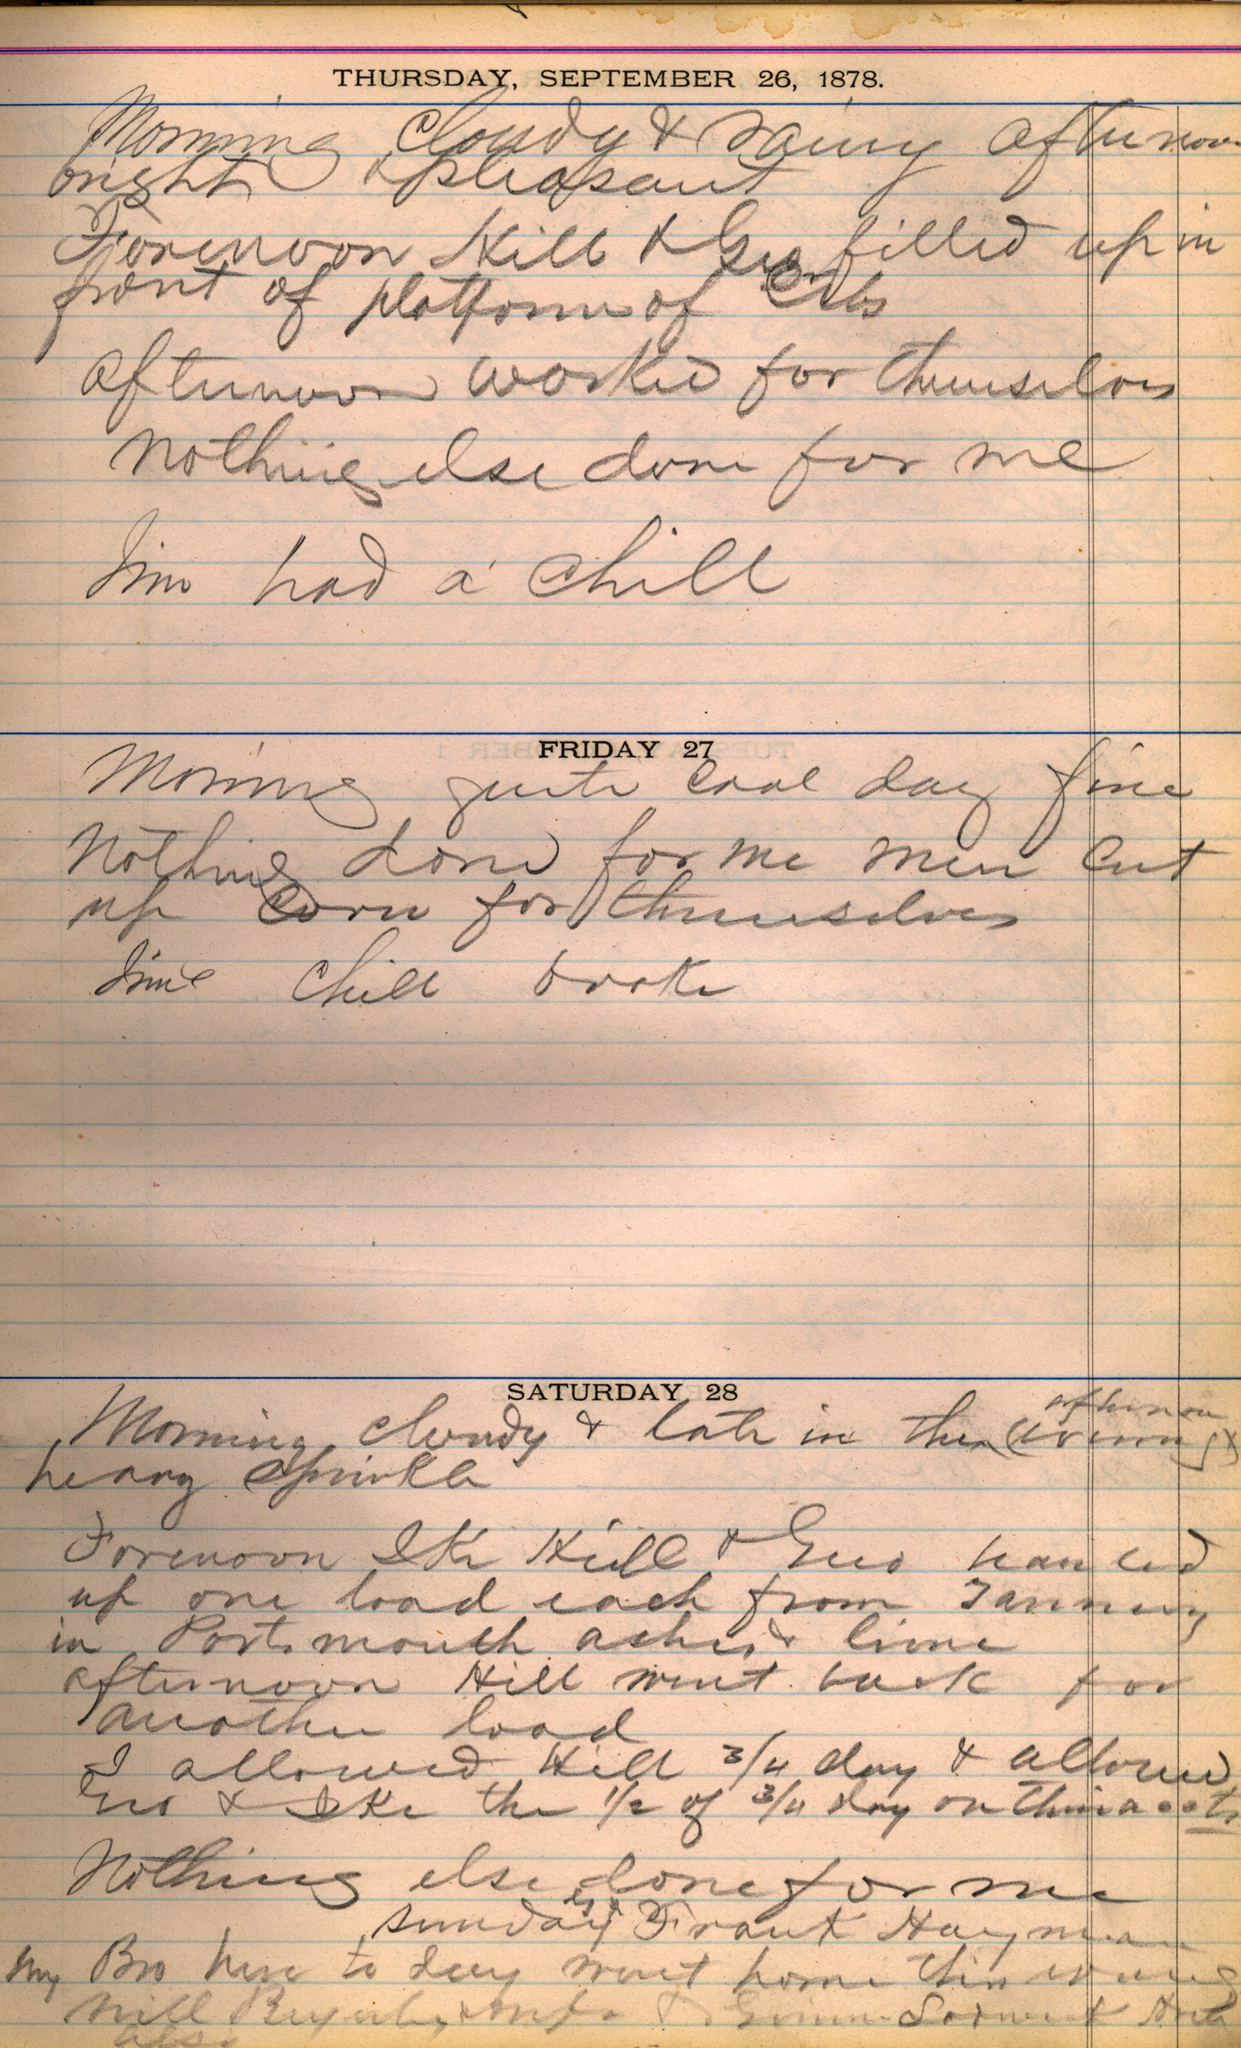 THURSDAY, SEPTEMBER 26, 1878.
Morning cloudy & rainy afternoon
bright & pleasant
Forenoon Hill & Geo filled up in
front of platform of
afternoon worked for themselves
Nothing else done for me
Jim had a chill
FRIDAY 27
Morning quite cool day fine
Nothing done for me men cut
up corn for themselves
Jims chill broke
SATURDAY 28
Morning cloudy & late in the (evening) afternoon
heavy sprinkle
Forenoon Ike Hill & Geo hauled
up one load each from Tannery
in Portsmouth ashes & lime
afternoon Hill went back for
another load
I allowed Hill 3/4 day & allowed
Geo & Ike the 1/2 of 3/4 day on their accts
Nothing else done for me
Sunday Frank Hayman
My Bro here to day went home this evening
Will & wife &
also